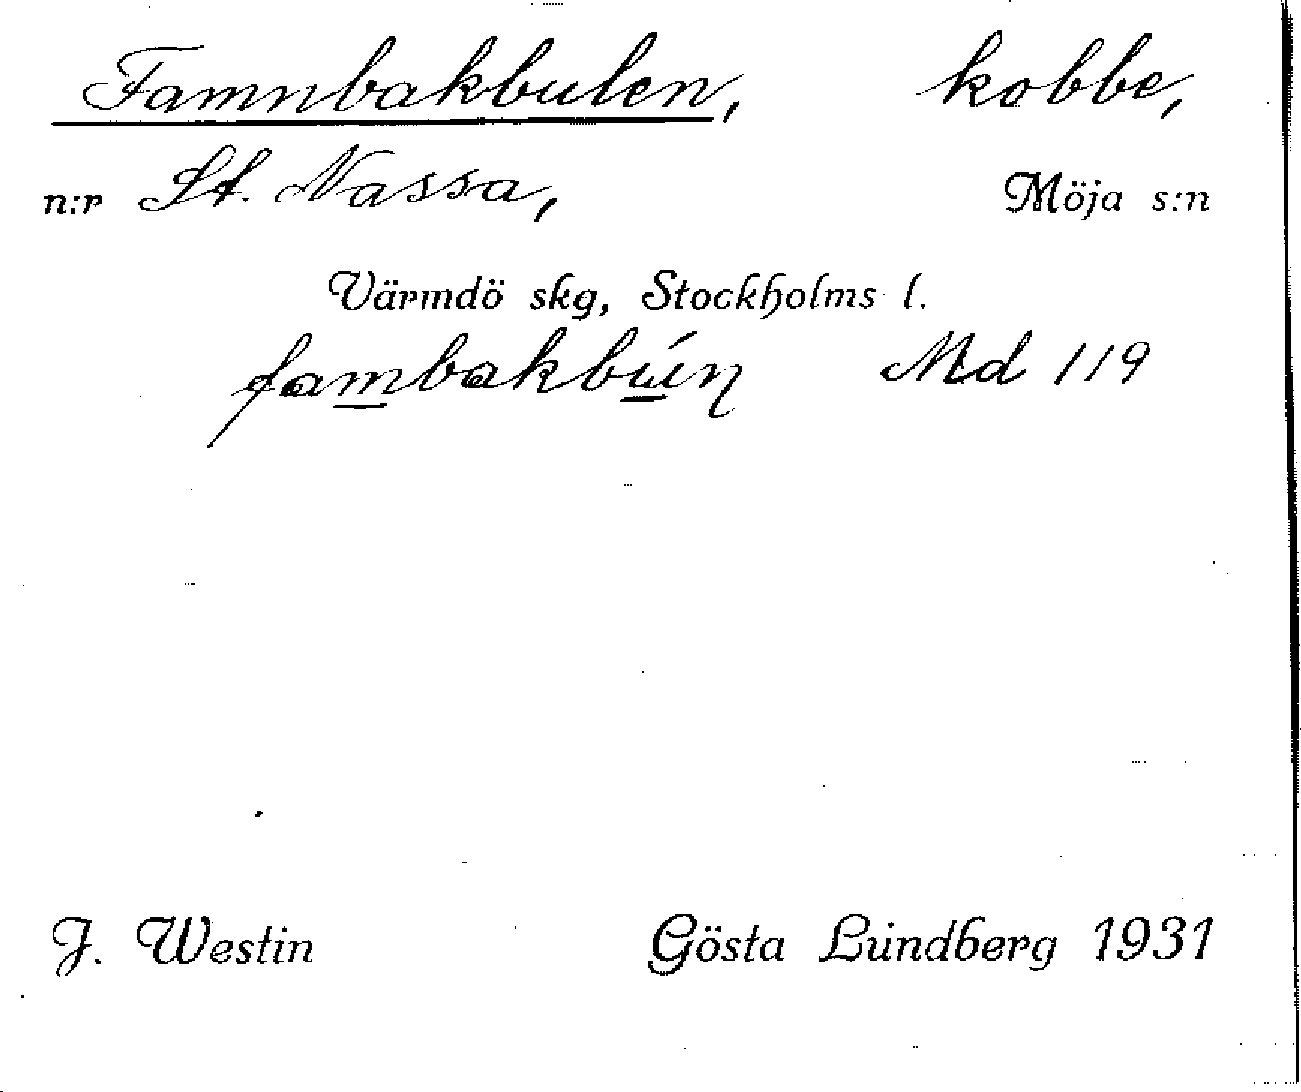 Famnbakbulen, kobbe,
n:r St. Nassa, Möja s:n
Värmdö skg, Stockholms l.
fambakbúin Md 119
J. Westin Gösta Lundberg 1931